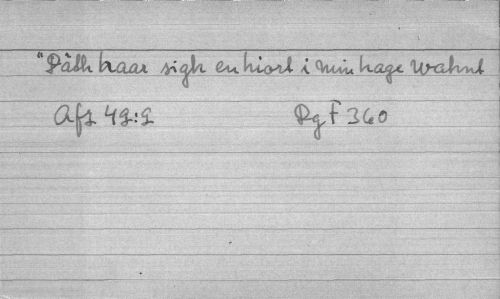 "Dåth haar sigh en hiort i min hage wahnt
Afz 49:9
Dg F 360